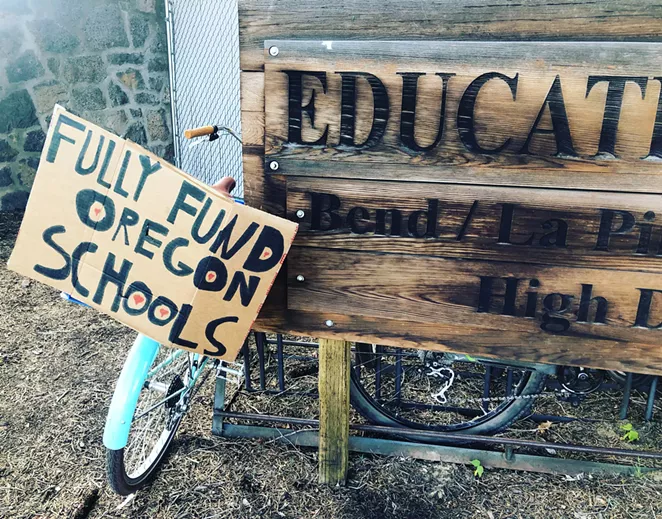 FULLY FUND
OREGON
SCHOOLS
EDUCAT
Bend / La Pi
High D